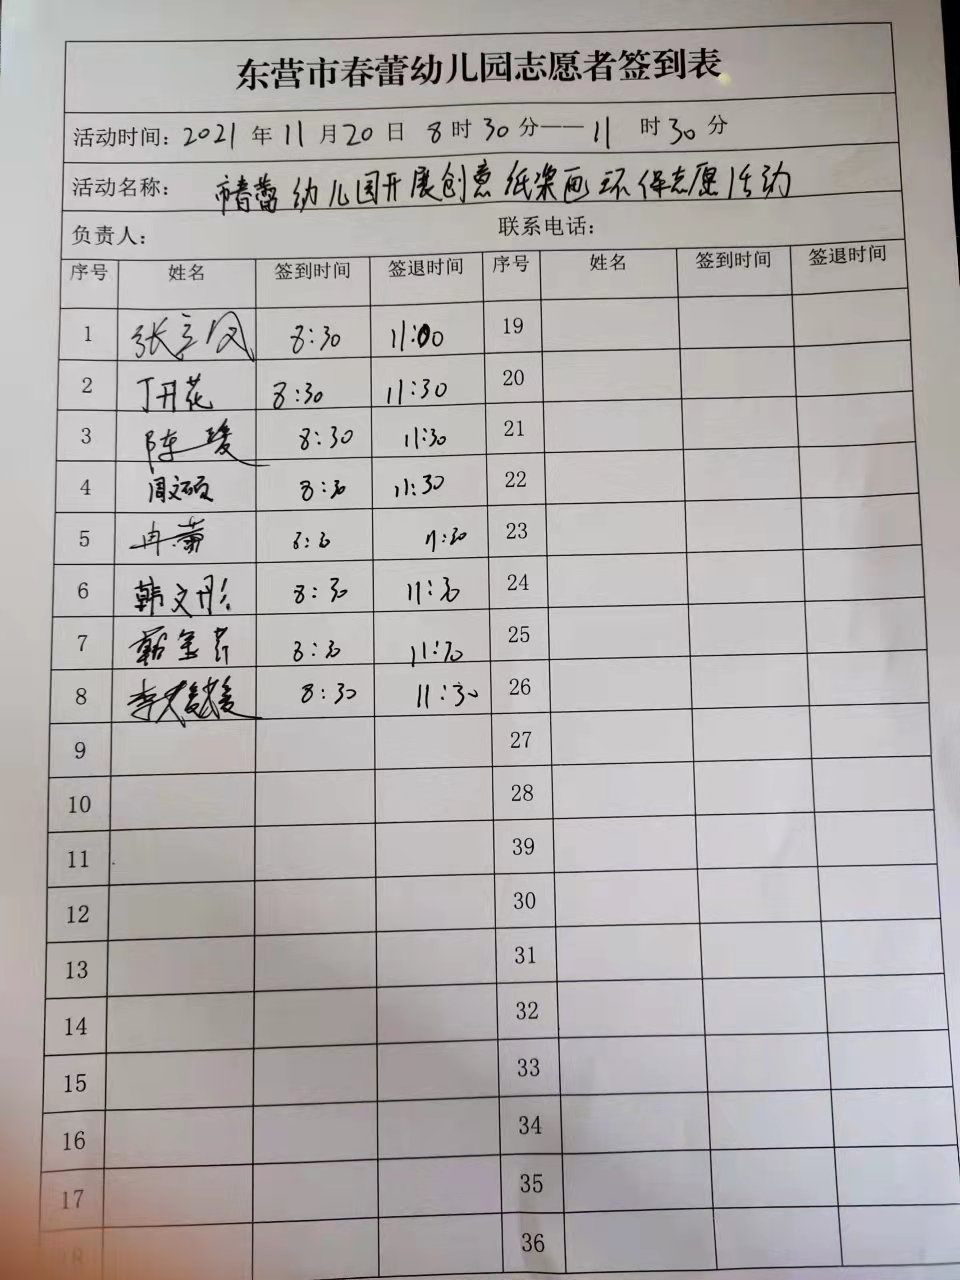 东营市春蕾幼儿园志愿者签到表
活动时间：2021年11月20日 8时30分——11时30分
活动名称：市春蕾幼儿园开展创意纸浆画环保志愿活动
负责人： 联系电话：
序号 姓名 签到时间 签退时间 序号 姓名 签到时间 签退时间
1 张立凤 8:30 11:00 19
2 丁开花 8:30 11:30 20
3 陈瑗 8:30 11:30 21
4 周文硕 8:30 11:30 22
5 冉蕾 8:30 11:30 23
6 韩文彤 8:30 11:30 24
7 8:30 11:30 25
8 李 8:30 11:30 26
9 27
10 28
11 39
12 30
13 31
14 32
15 33
16 34
17 35
18 36